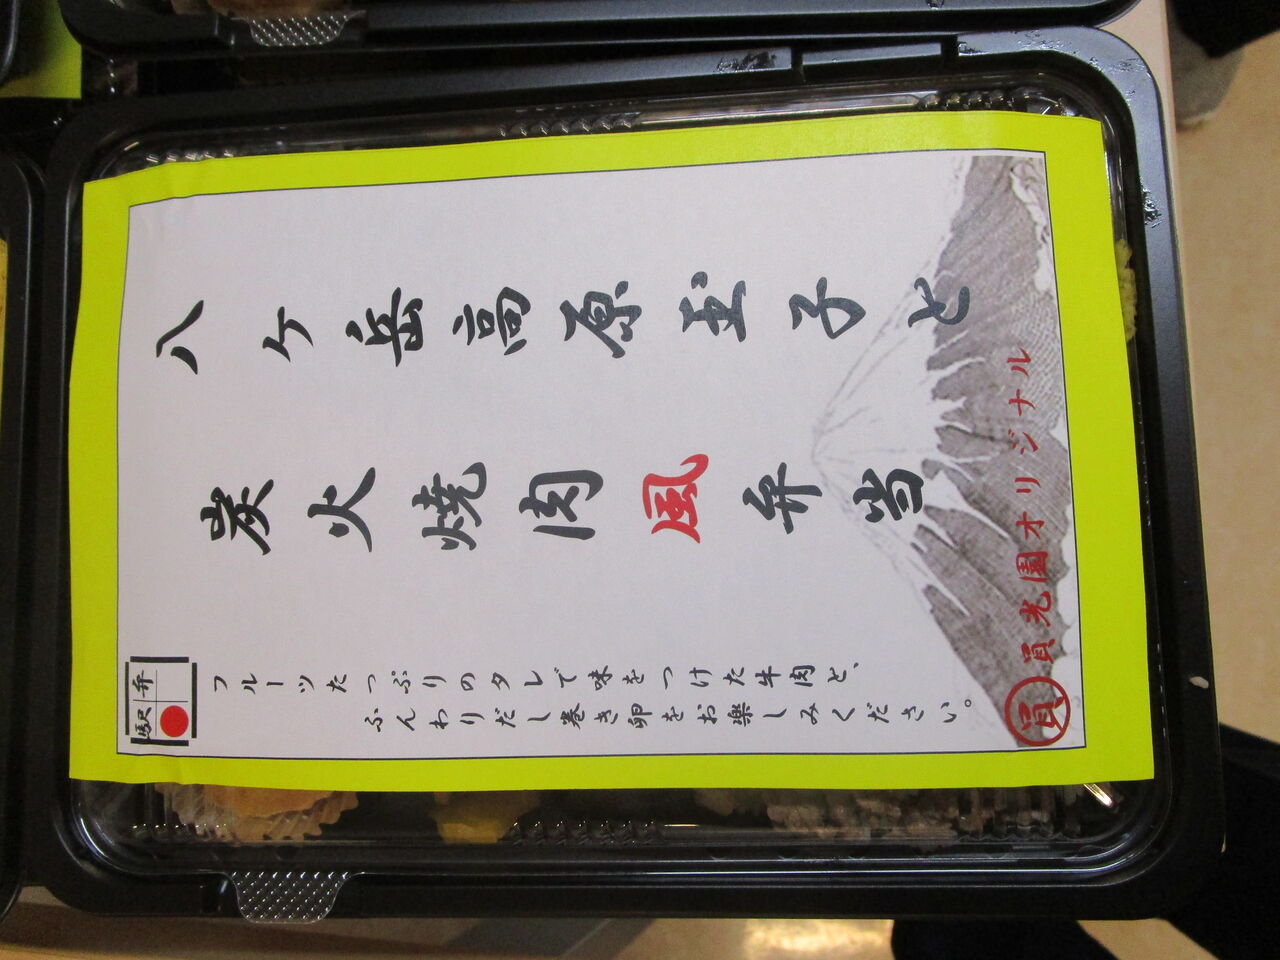 八ヶ岳高原玉子と
炭火焼肉風弁当
フルーツたっぷりのタレで味をつけた牛肉と、
ふんわりだし巻き卵をお楽しみください。
駅弁
員 員光園オリジナル